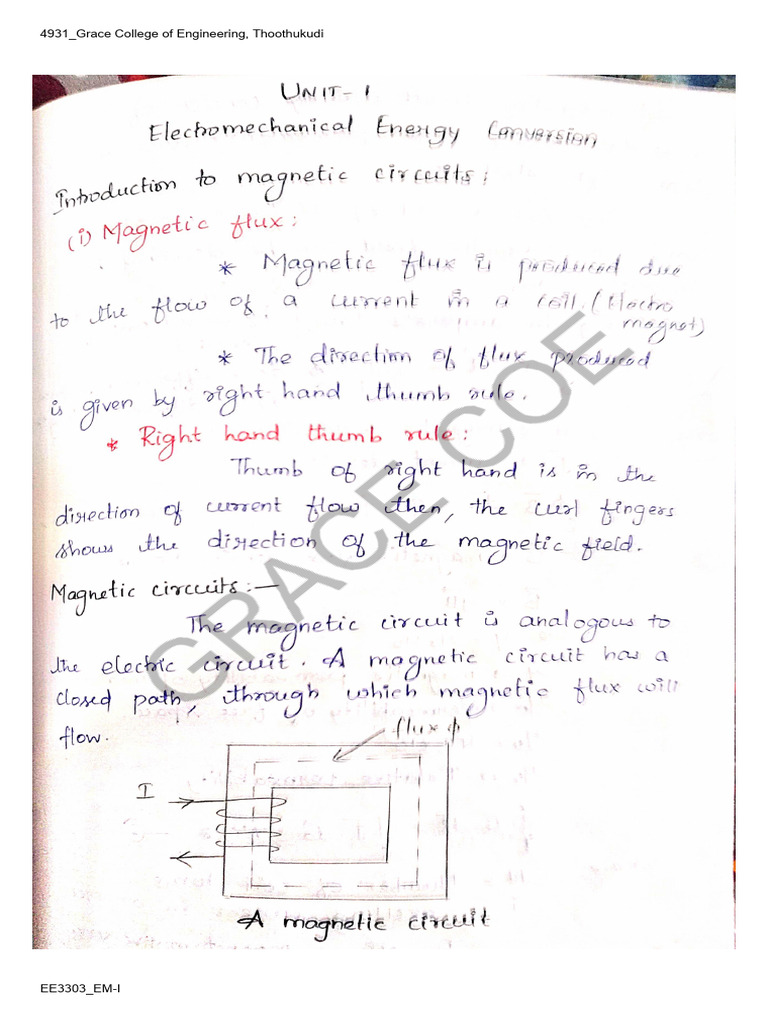 4931_Grace College of Engineering, Thoothukudi
UNIT-1
Electromechanical Energy Conversion
Introduction to magnetic circuits:
(i) Magnetic flux:
* Magnetic flux is produced due
to the flow of a current in a coil. (Electro
magnet)
* The direction of flux produced
is given by right hand thumb rule.
* Right hand thumb rule:
Thumb of right hand is in the
direction of current flow then, the curl fingers
shows the direction of the magnetic field.
Magnetic circuits:-
The magnetic circuit is analogous to
the electric circuit. A magnetic circuit has a
closed path, through which magnetic flux will
flow.
flux ϕ
I
A magnetic circuit
GRACE COE
EE3303_EM-I